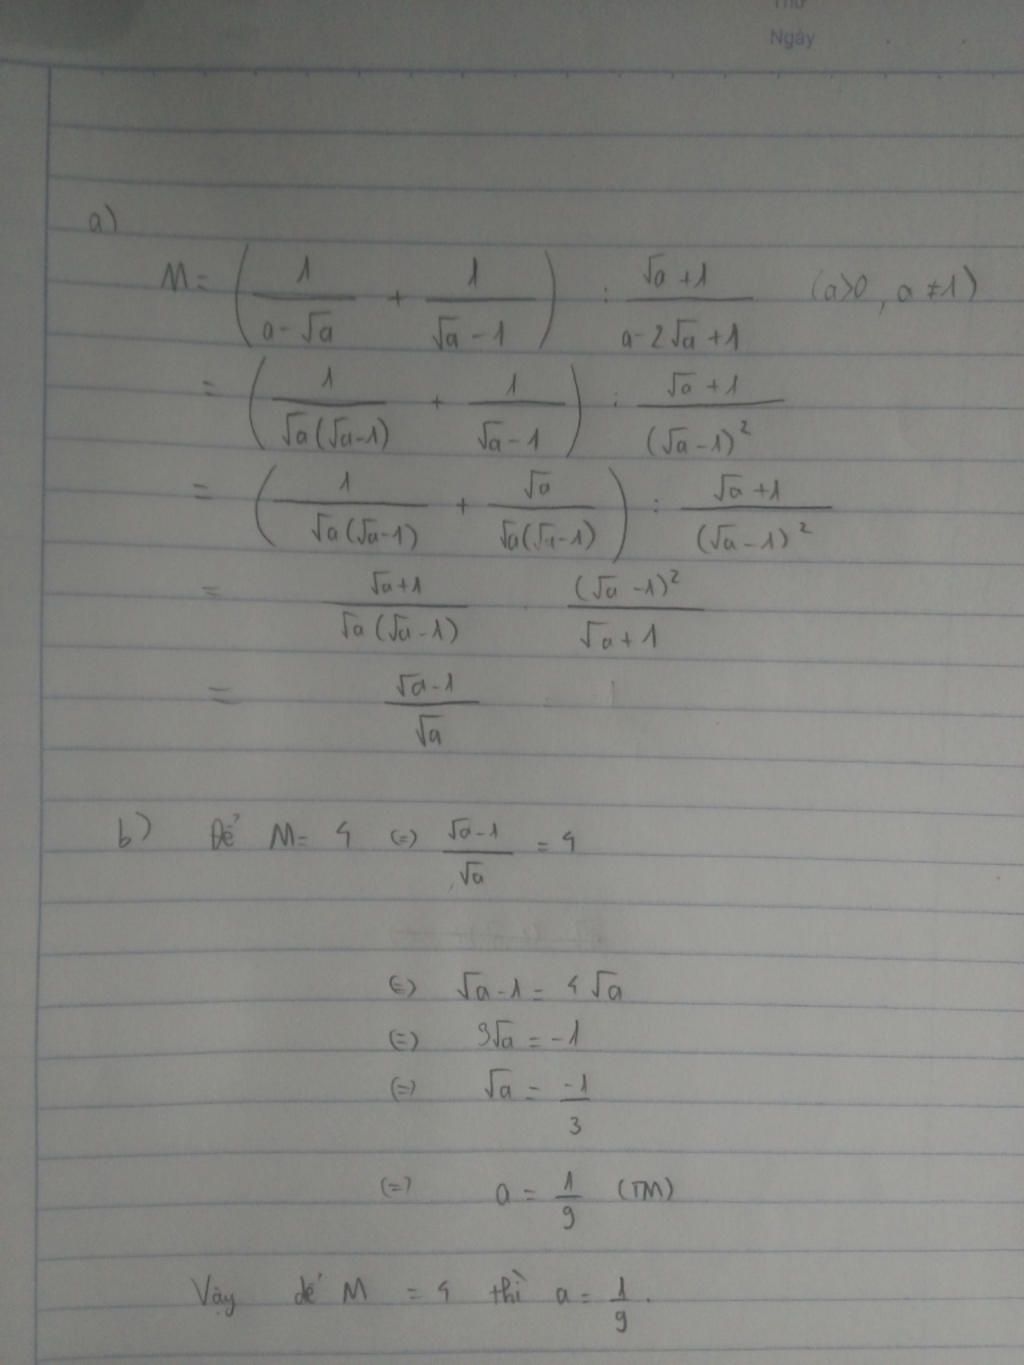 Thứ
Ngày
a)
M = ( 1/(a - √a) + 1/(√a - 1) ) : (√a + 1)/(a - 2√a + 1) (a>0, a ≠ 1)
= ( 1/(√a(√a-1)) + 1/(√a - 1) ) : (√a + 1)/(√a - 1)²
= ( 1/(√a(√a-1)) + √a/(√a(√a-1)) ) : (√a + 1)/(√a - 1)²
= (√a+1)/(√a(√a-1)) . (√a - 1)²/(√a + 1)
= (√a-1)/√a
b) Để M = 4 (=) (√a-1)/√a = 4
(=) √a - 1 = 4√a
(=) 3√a = -1
(=) √a = -1/3
(=) a = 1/9 (TM)
Vậy để M = 4 thì a = 1/9.